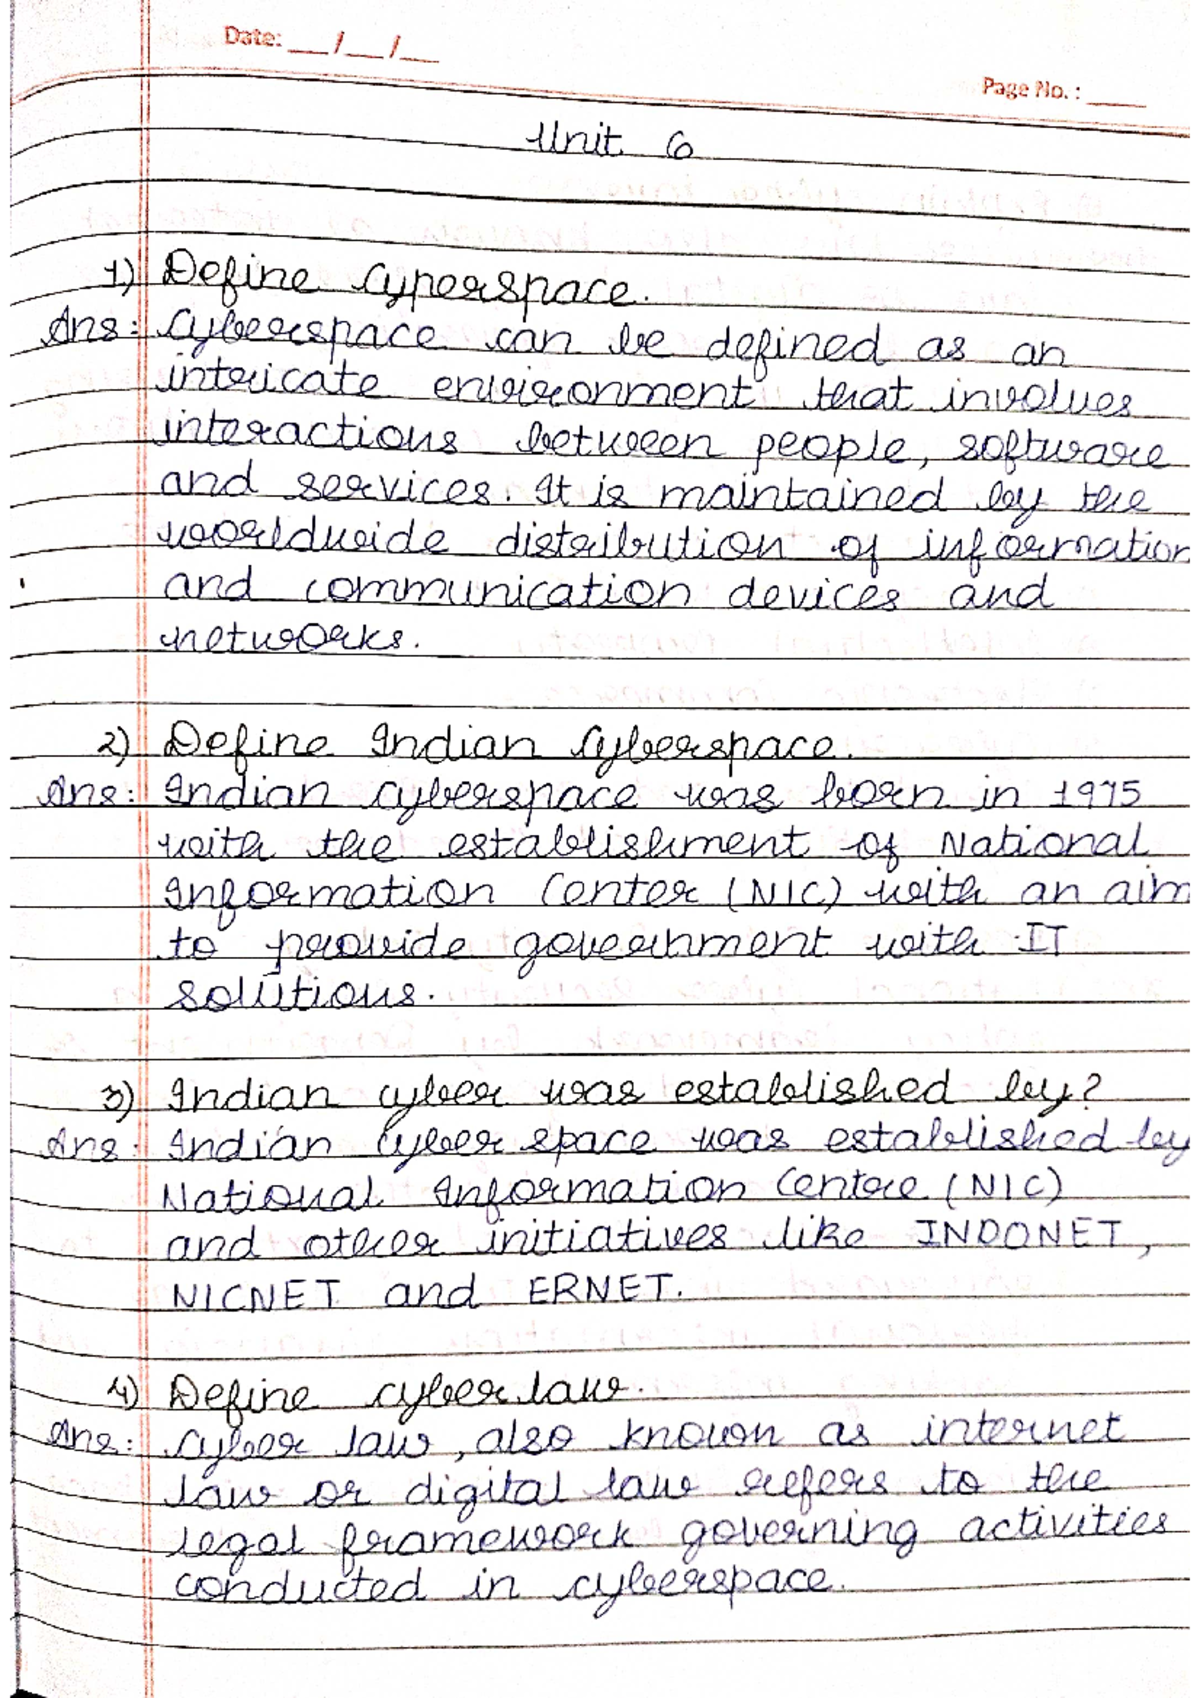 Date: __/__/__
Page No. : ____
Unit 6
1) Define Cyperspace.
Ans: Cyberspace can be defined as an
intricate environment that involves
interactions between people, software
and services. It is maintained by the
worldwide distribution of information
and communication devices and
networks.
2) Define Indian Cyberspace.
Ans: Indian cyberspace was born in 1975
with the establishment of National
Information Center (NIC) with an aim
to provide government with IT
solutions.
3) Indian cyber was established by?
Ans: Indian cyber space was established by
National Information Centre (NIC)
and other initiatives like INDONET,
NICNET and ERNET.
4) Define cyber law.
Ans: Cyber law, also known as internet
law or digital law refers to the
legal framework governing activities
conducted in cyberspace.